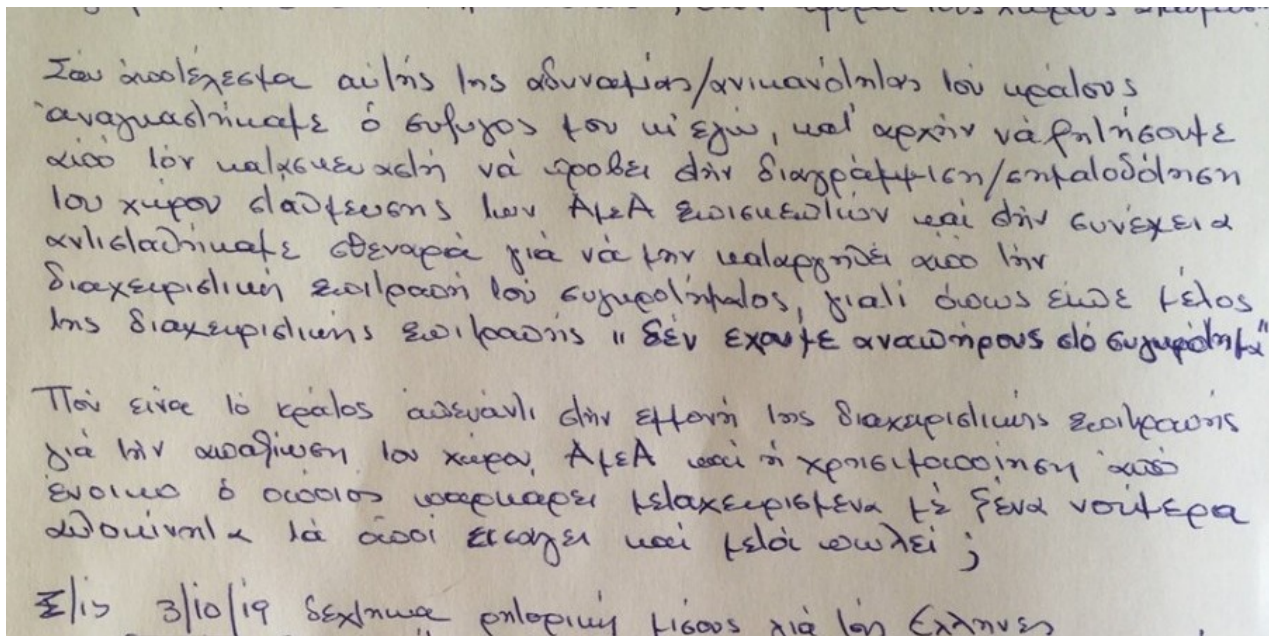 τους χώρους
Σαν αποτέλεσμα αυτής της αδυναμίας/ανικανότητας του κράτους
αναγκαστήκαμε ό συζυγος μου κι' εγώ, κατ' αρχήν νά ζητήσουμε
από τόν κατασκευαστή νά προβει στήν διαγράμμιση/σηματοδότηση
του χώρου στάθμευσης των ΑμεΑ επισκεπτών καί στήν συνέχεια
αντισταθήκαμε σθεναρά γιά νά μην καταργηθεί από τήν
διαχειριστική επιτροπή του συγκροτήματος, γιατί όπως είπε μέλος
της διαχειριστικής επιτροπής "δέν έχουμε αναπήρους στό συγκρότημα"
Πού είναι τό κράτος απέναντι στήν εμμονή της διαχειριστικής επιτροπής
γιά τήν απαξίωση του χώρου ΑμεΑ καί ή χρησιμοποίηση από
ένοικο ό οποίος παρκάρει μεταχειρισμένα μέ ξένα νούμερα
αυτοκίνητα τά οποί εισάγει καί μετά πωλεί ;
Σ/ις 3/10/19 δέχτηκα ρητορική μίσους γιά τόν Ελληνες